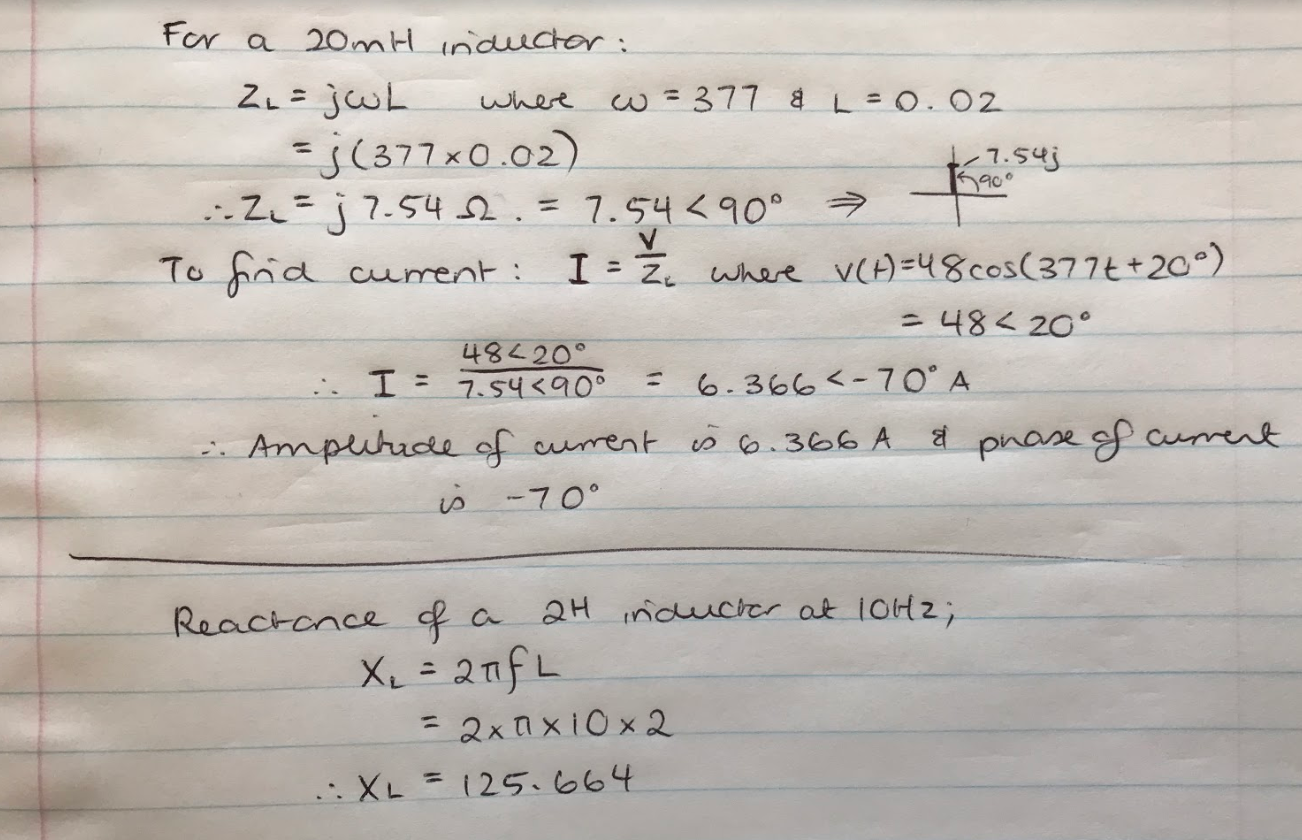 For a 20mH inductor:
Z_L = jωL where ω = 377 & L = 0.02
= j(377×0.02)
7.54j
90°
∴ Z_L = j 7.54 Ω . = 7.54 < 90° ⇒
To find current : I = V/Z_L where v(t)=48cos(377t+20°)
= 48 < 20°
∴ I = 48<20° / 7.54<90° = 6.366 < -70° A
∴ Amplitude of current is 6.366 A & phase of current
is -70°
Reactance of a 2H inductor at 10Hz;
X_L = 2πfL
= 2×π×10×2
∴ X_L = 125.664